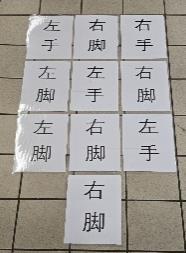 左手 右脚 右手
左脚 左手 右脚
左脚 右脚 左手
右脚